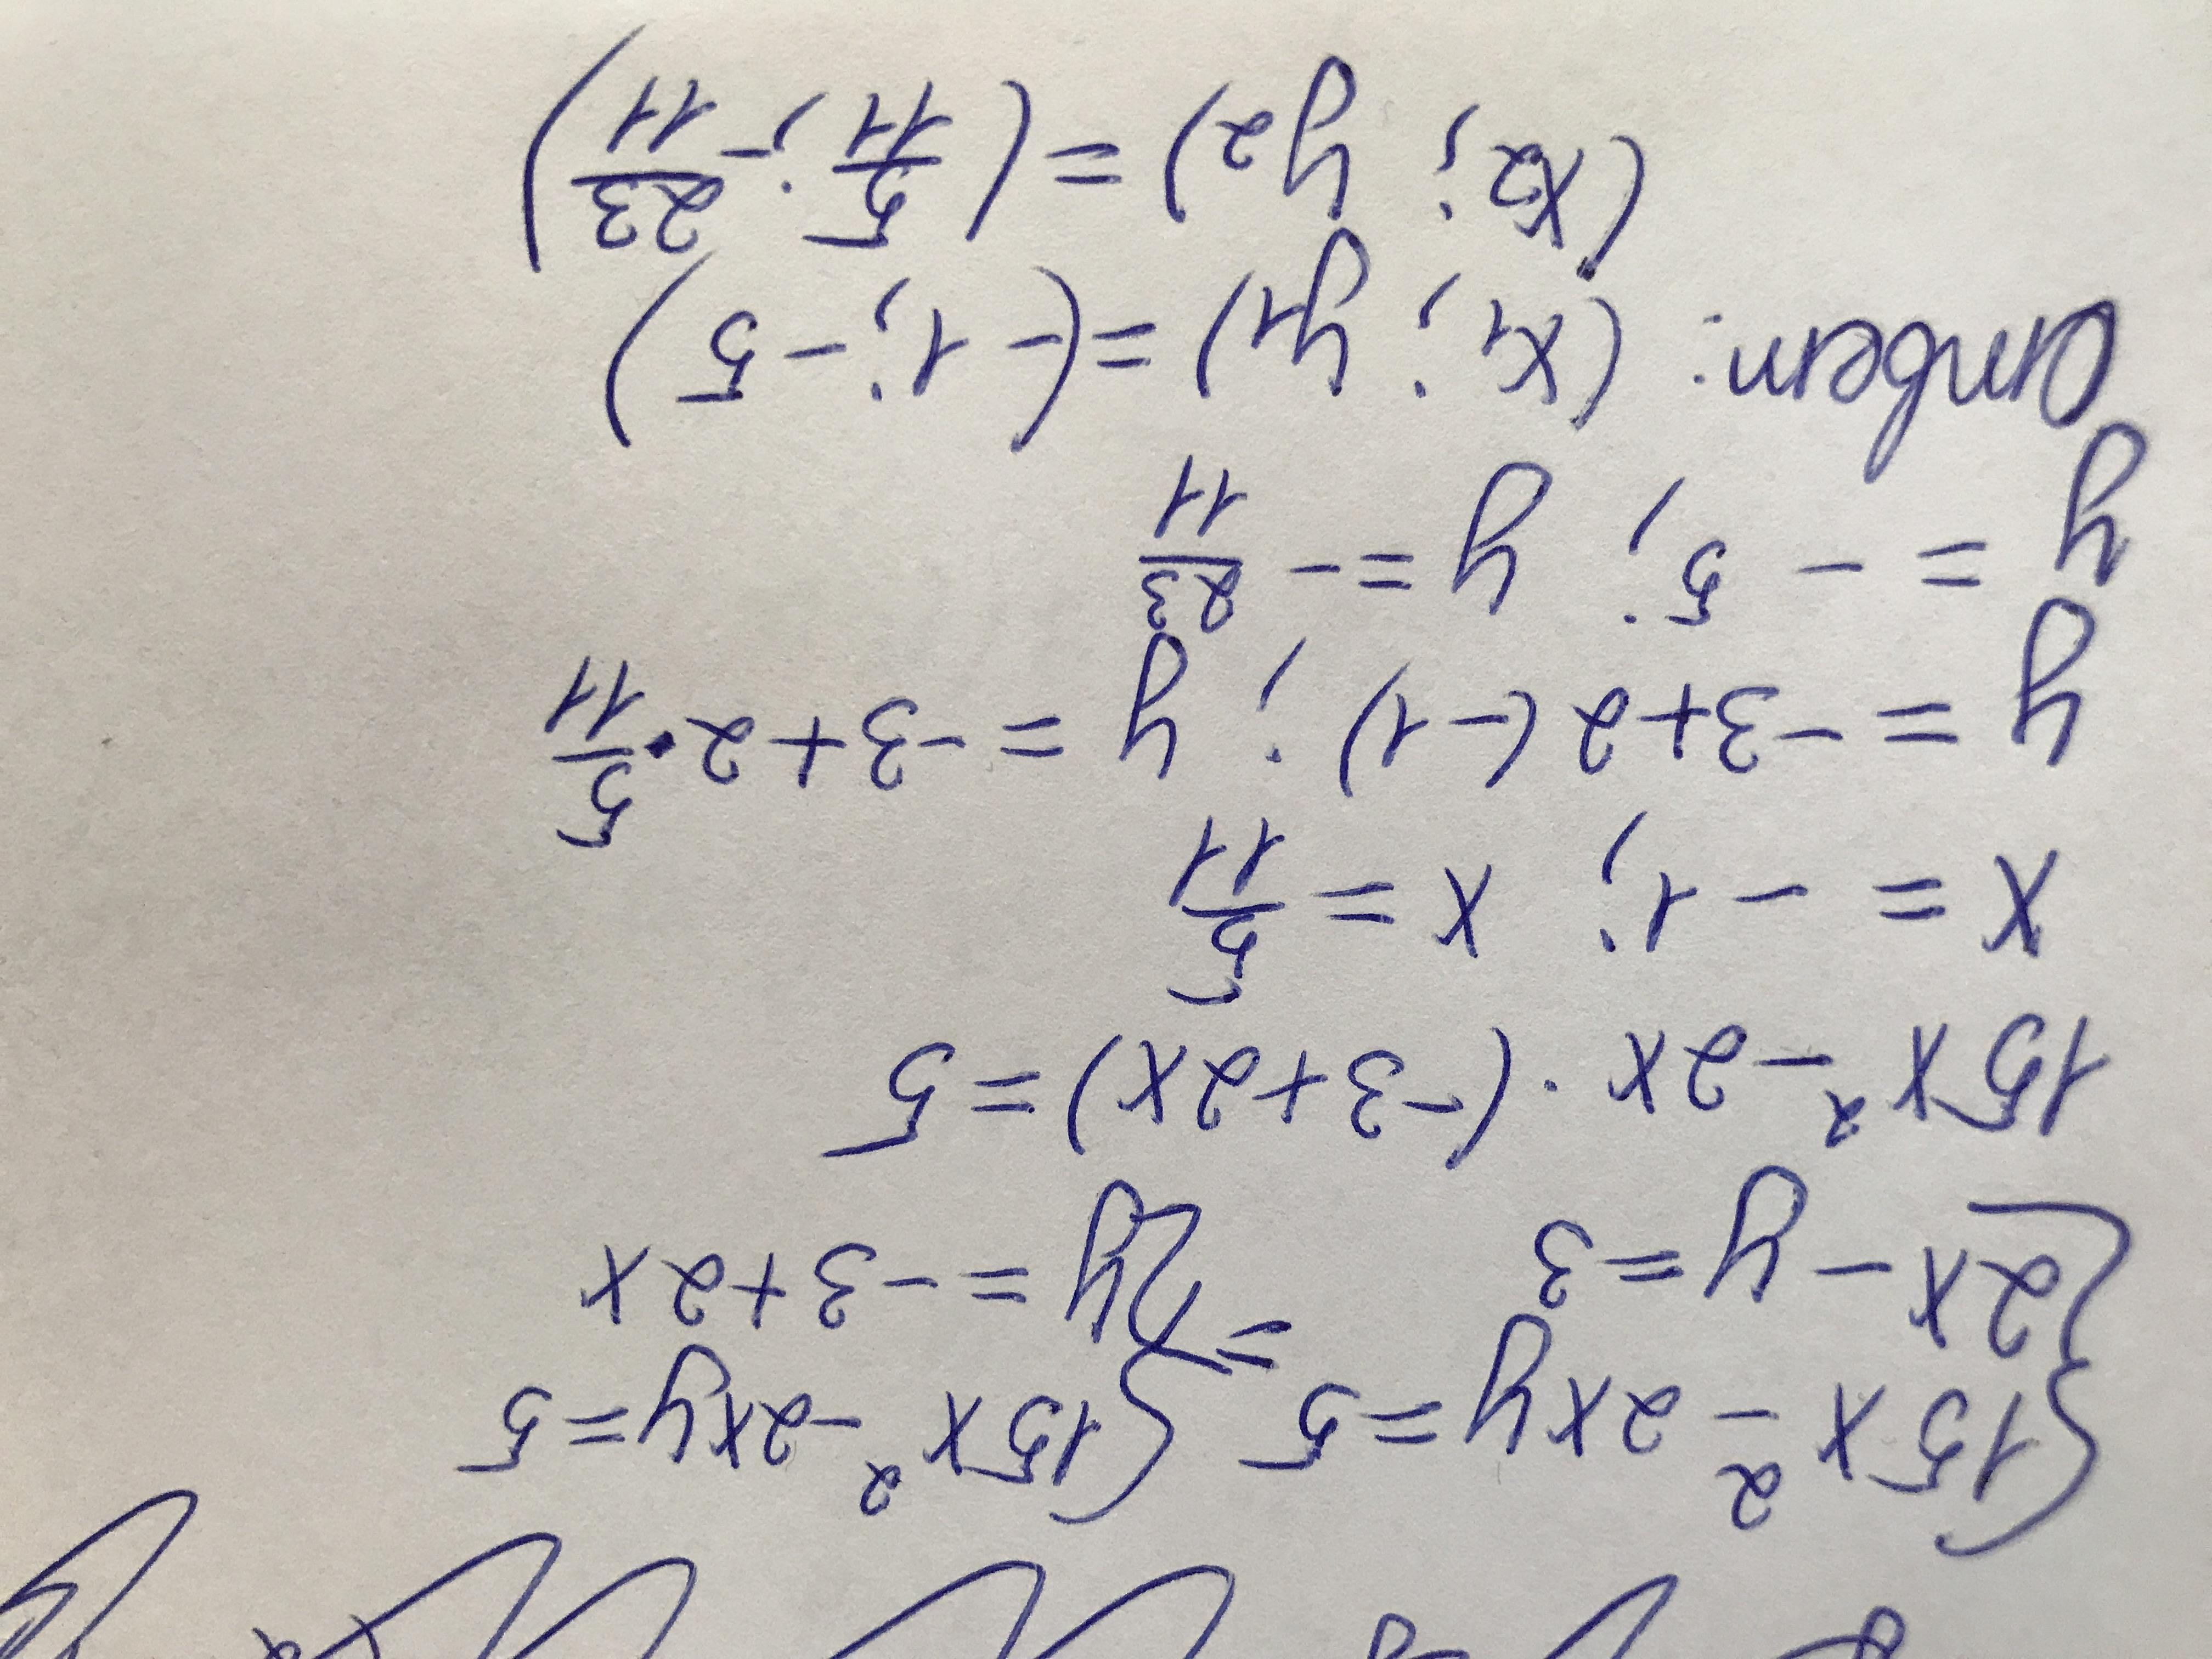 {15x² - 2xy = 5 {15x² - 2xy = 5
{2x - y = 3 = {y = -3 + 2x
15x² - 2x · (-3 + 2x) = 5
x = -1; x = 5/11
y = -3 + 2(-1); y = -3 + 2 · 5/11
y = -5; y = - 23/11
Ответ: (x₁; y₁) = (-1; -5)
(x₂; y₂) = (5/11; - 23/11)